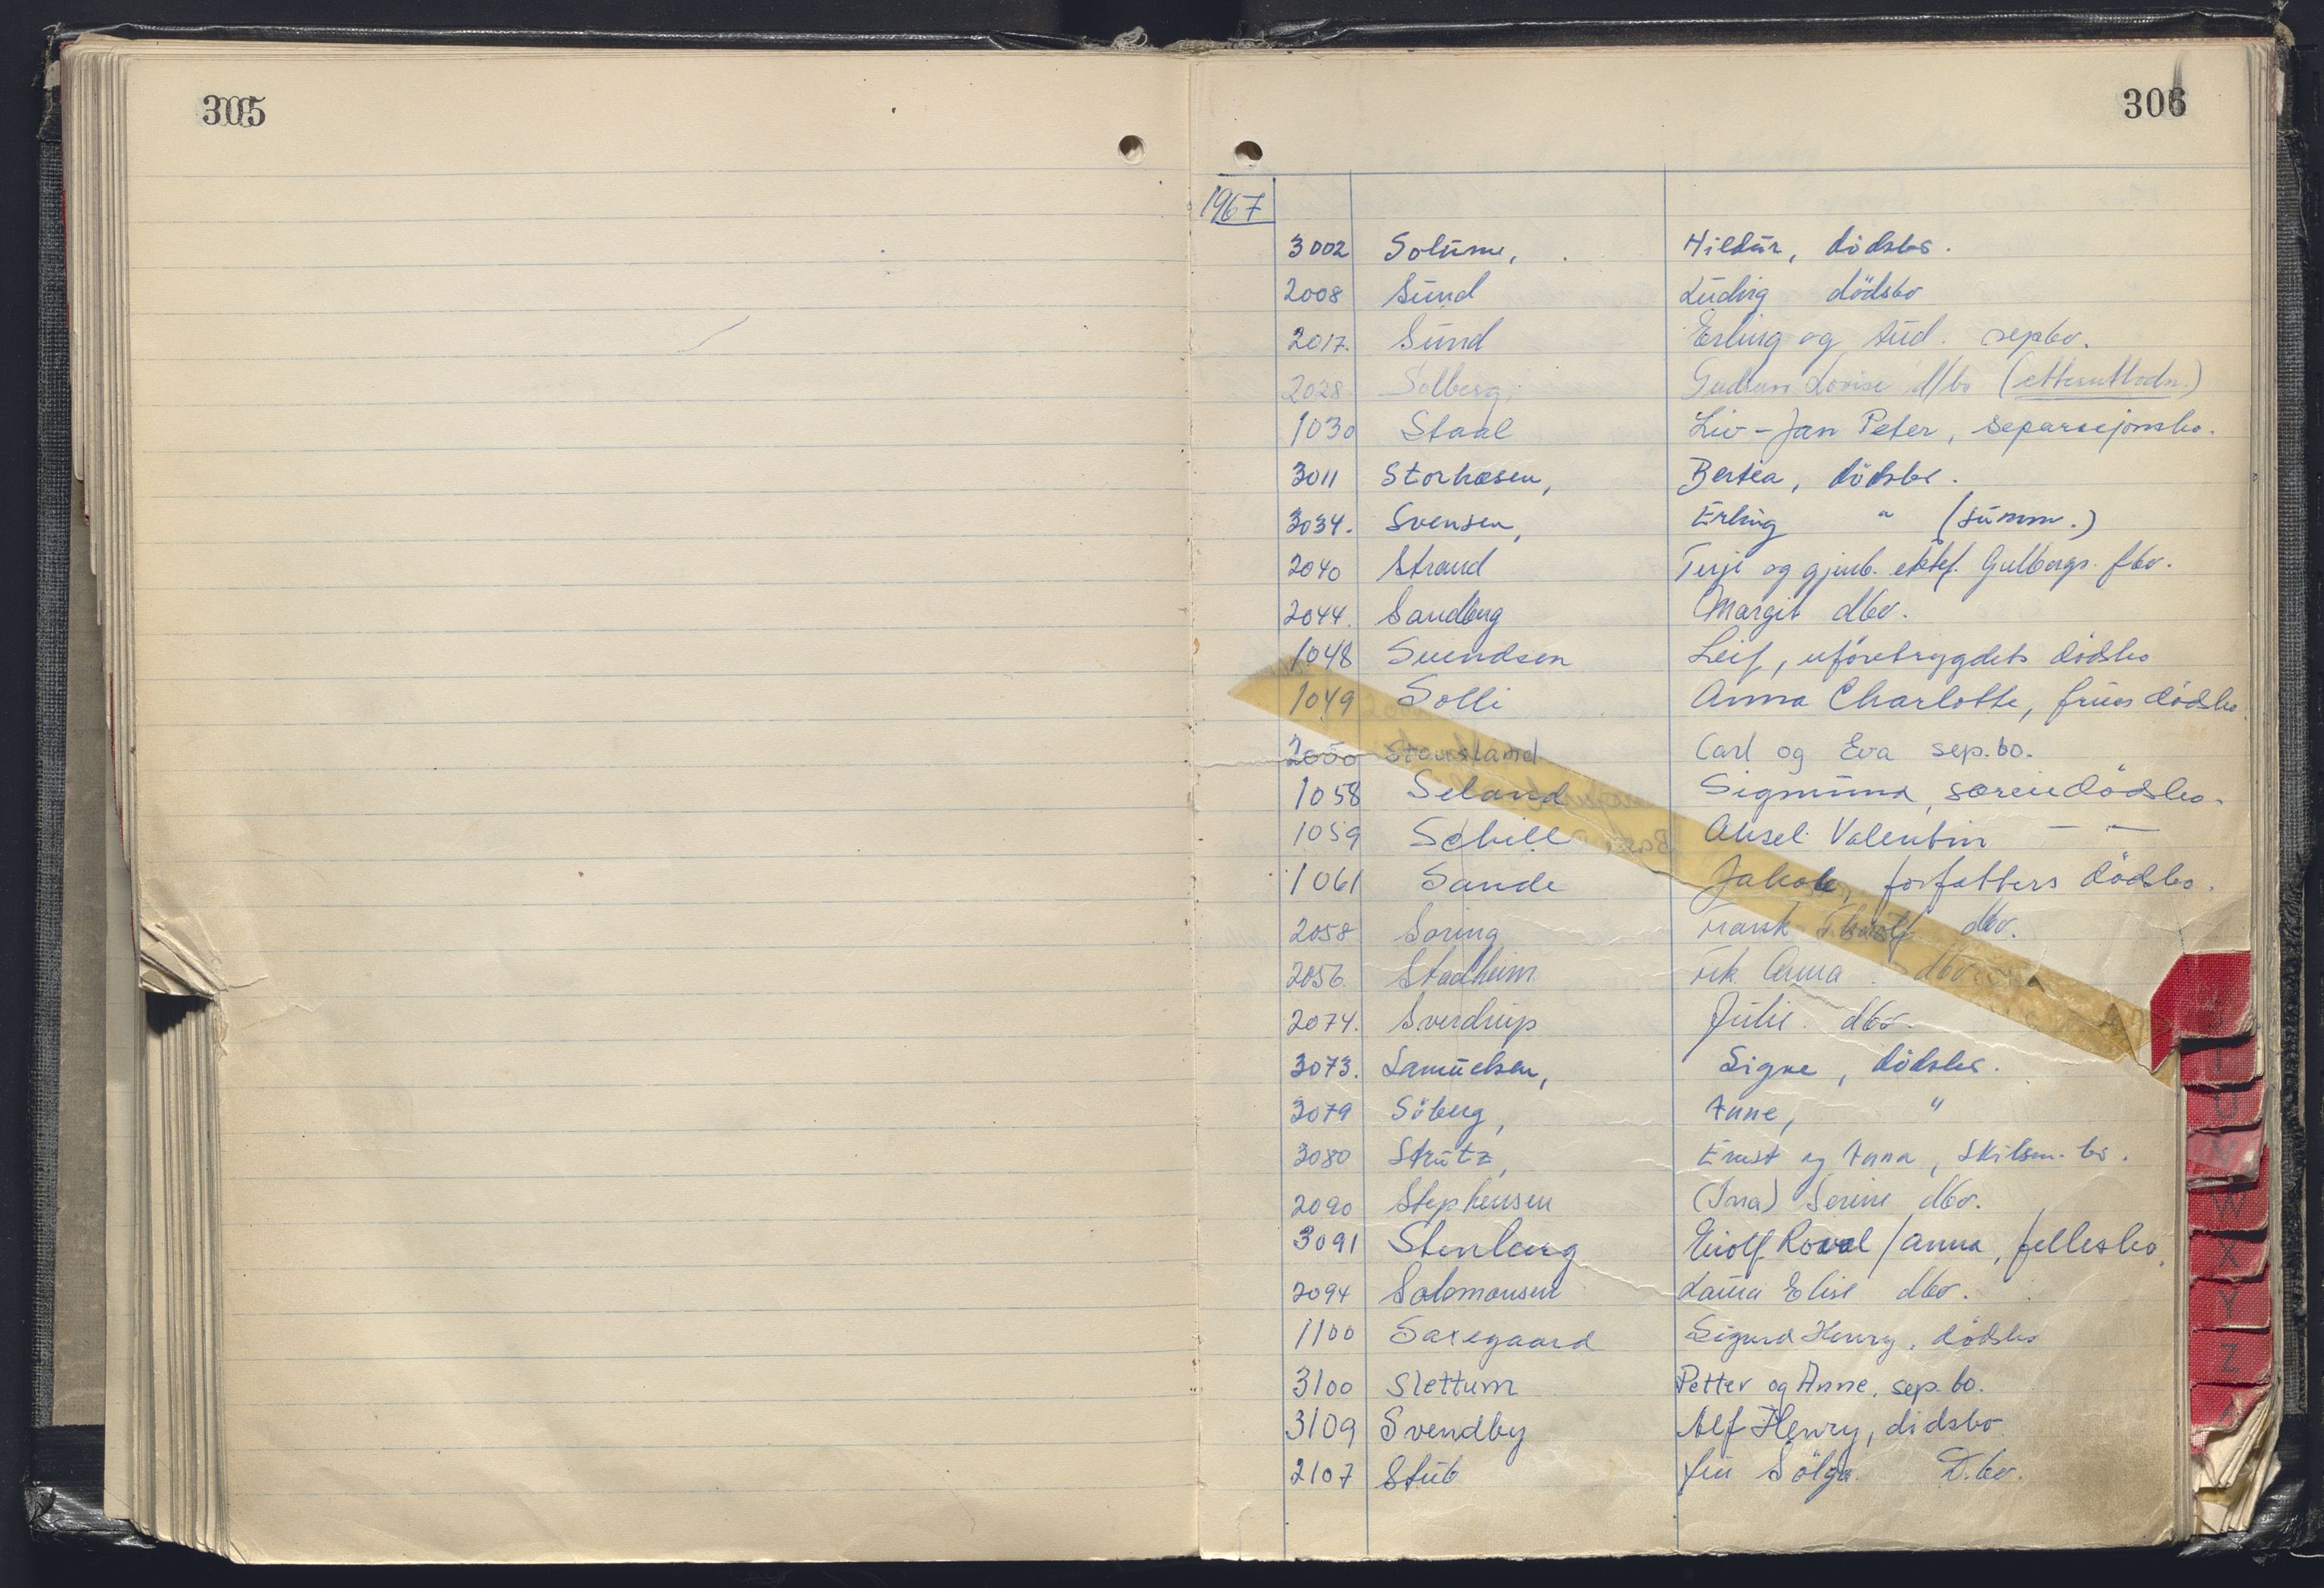 305
306
1967
3002 Solum, Hildur, dödsbo.
2008 Sund Ludvig dödsbo
2017. Sund Erling og Aud. sepbo.
2028 Solberg, Gudrun Lovise d/bo
1030 Staal Liv - Jan Peter, separasjonsbo.
3011 Storhosen, Bertea, dödsbo.
3034. Svensen, Erling " (summ.)
2040 Strand Terje og gjenb. ektef. Gulborgs. fbo.
2044. Sandberg Margit dbo.
1048 Svendsen Leif, uföretrygdets dödsbo
1049 Solli Anna Charlotte, frues dödsbo.
Carl og Eva sep.bo.
1058 Seland Sigmund, dödsbo.
1059 Schill Aksel Valentin — " —
1061 Sande Jakob, forfatters dödsbo.
2058 Soring dbo.
2056. Stadheim frk. Anna dbo
2074. Sverdrup Julie. dbo.
3073. Samuelsen, Signe, dödsbo.
3079 Söberg, Anne, "
3080 Strutz, Ernst og Anna, skilsm. bo.
2090 Stephensen (Ina) Serine dbo.
3091 Stenberg Roval / Anna, fellesbo.
2094 Salomonsen Laura Elise dbo.
1100 Saxegaard Sigurd Henry, dödsbo
3100 Slettum Petter og Anne, sep. bo.
3109 Svendby Alf Henry, dödsbo
2107 Stub fru D.bo.
T
U
V
W
X
Y
Z